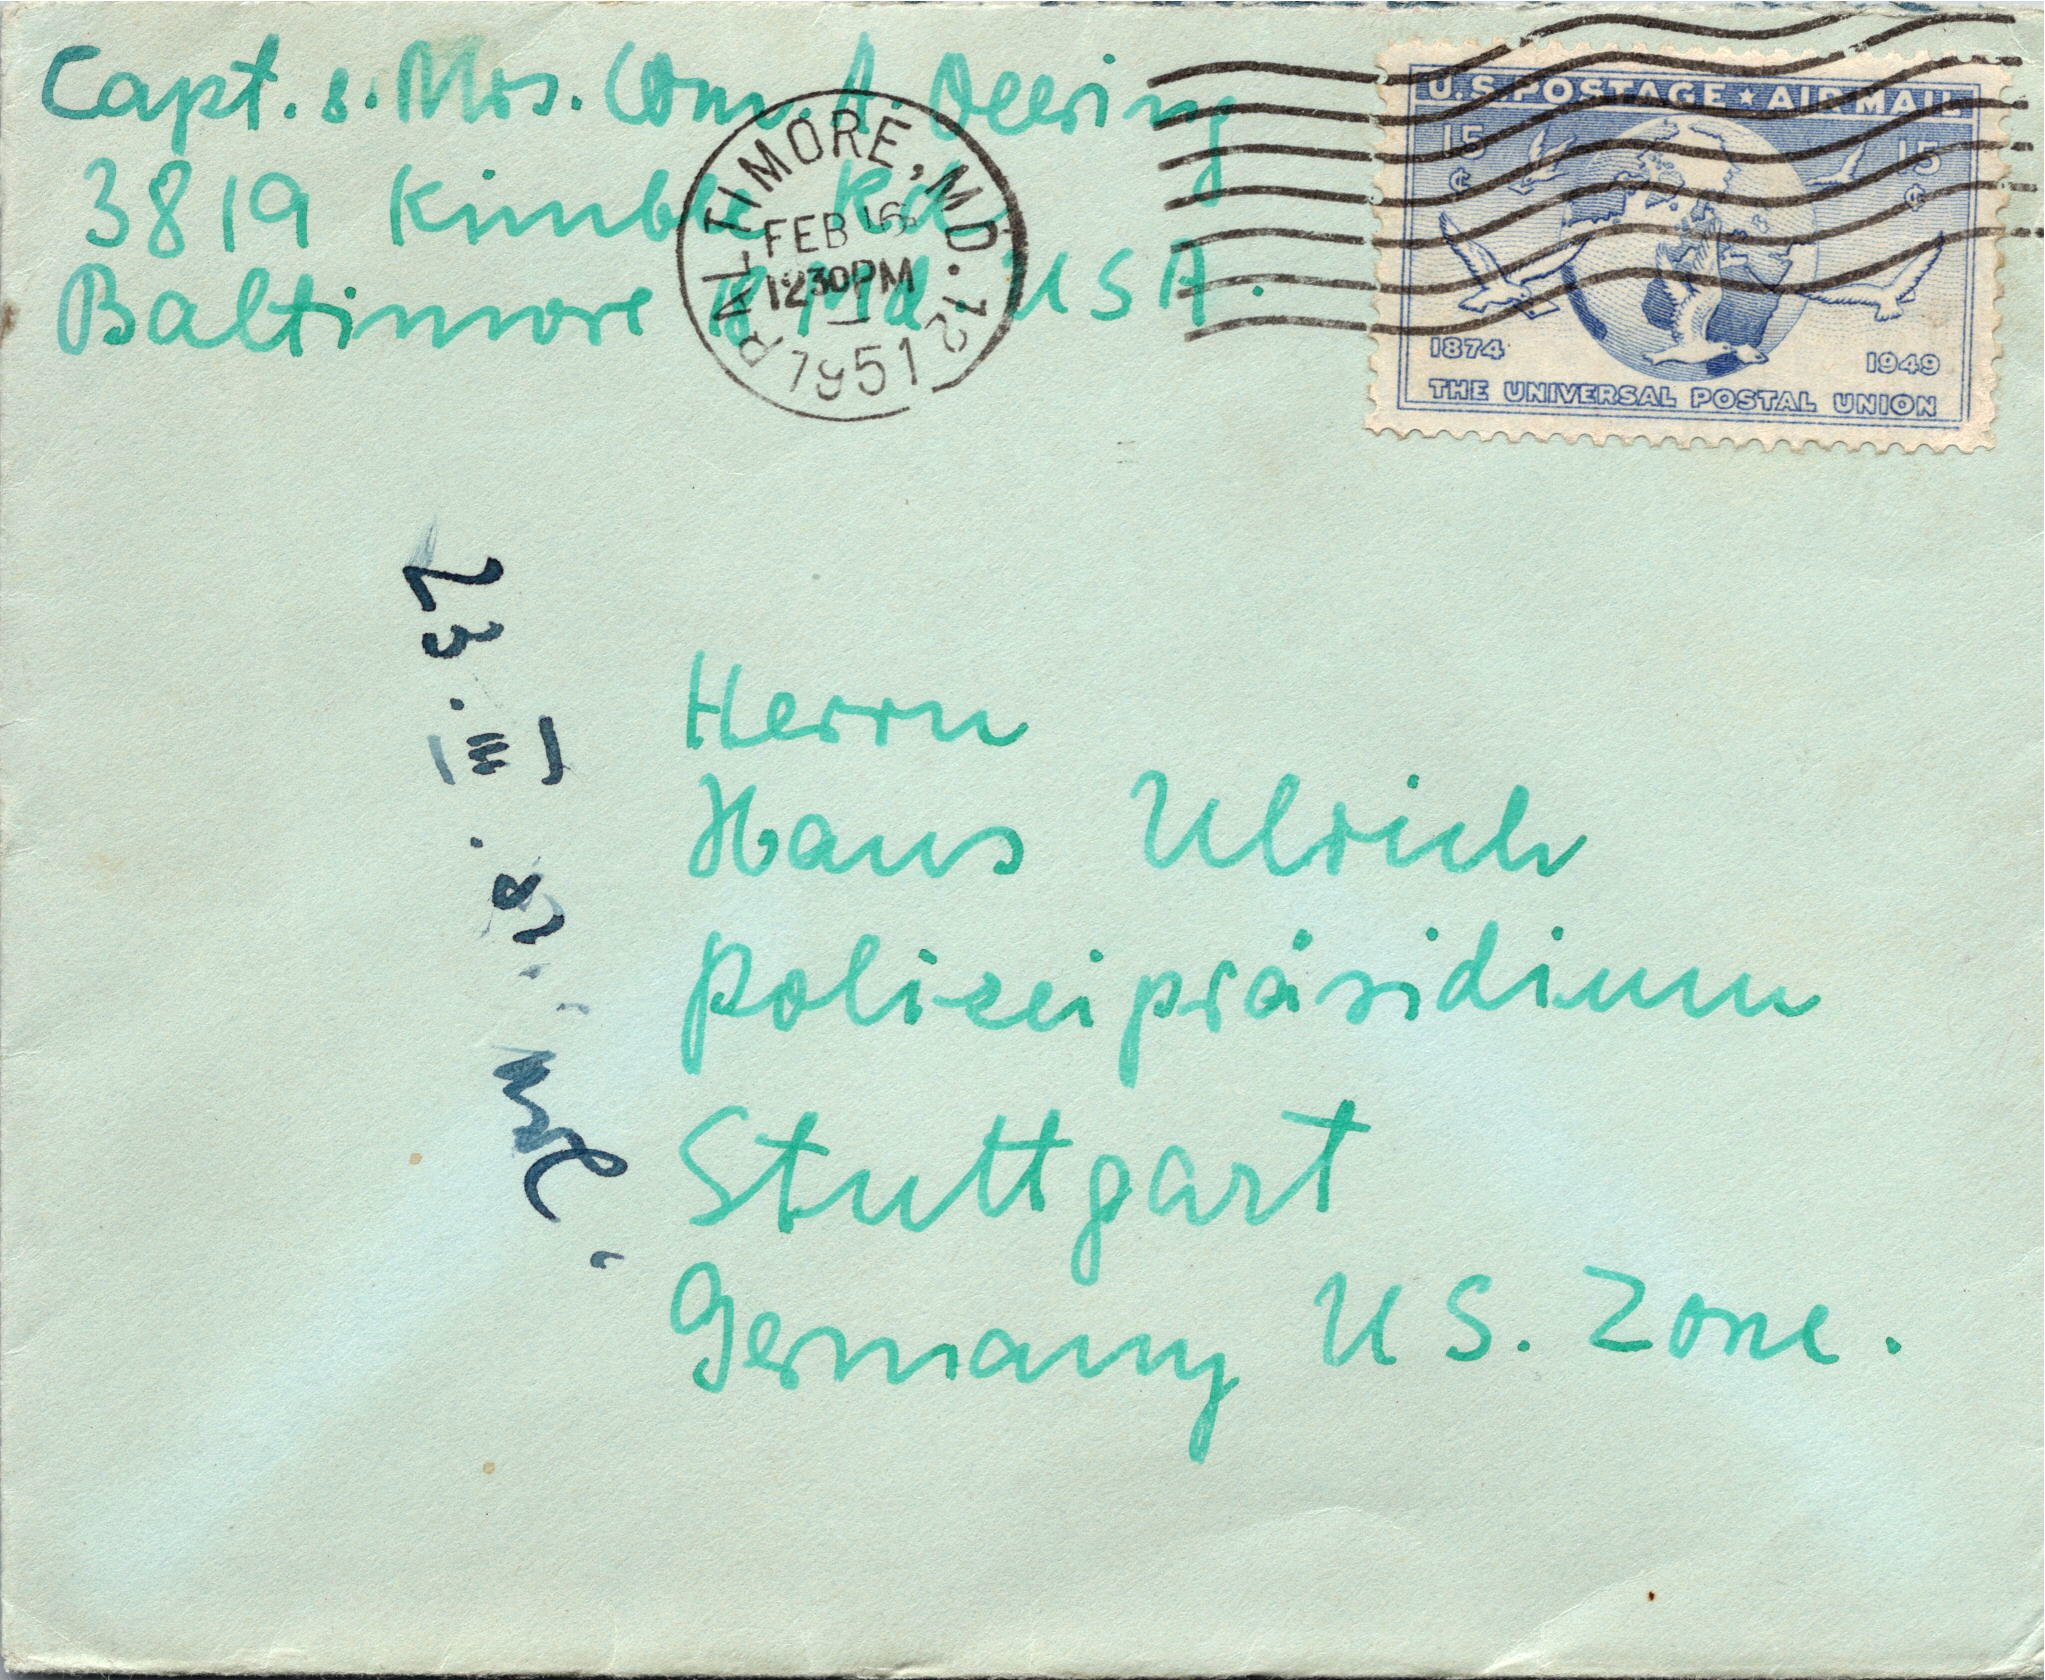 Capt. & Mrs. Wm. A. Deering
3819 Kimble Rd.
Baltimore 18 Md USA.
BALTIMORE, MD. 12
FEB 16
1230PM
1951
U.S. POSTAGE ★ AIR MAIL
15¢ 15¢
1874 1949
THE UNIVERSAL POSTAL UNION
23. III.
Herrn
Hans Ulrich
Polizeipräsidium
Stuttgart
Germany U S. Zone.